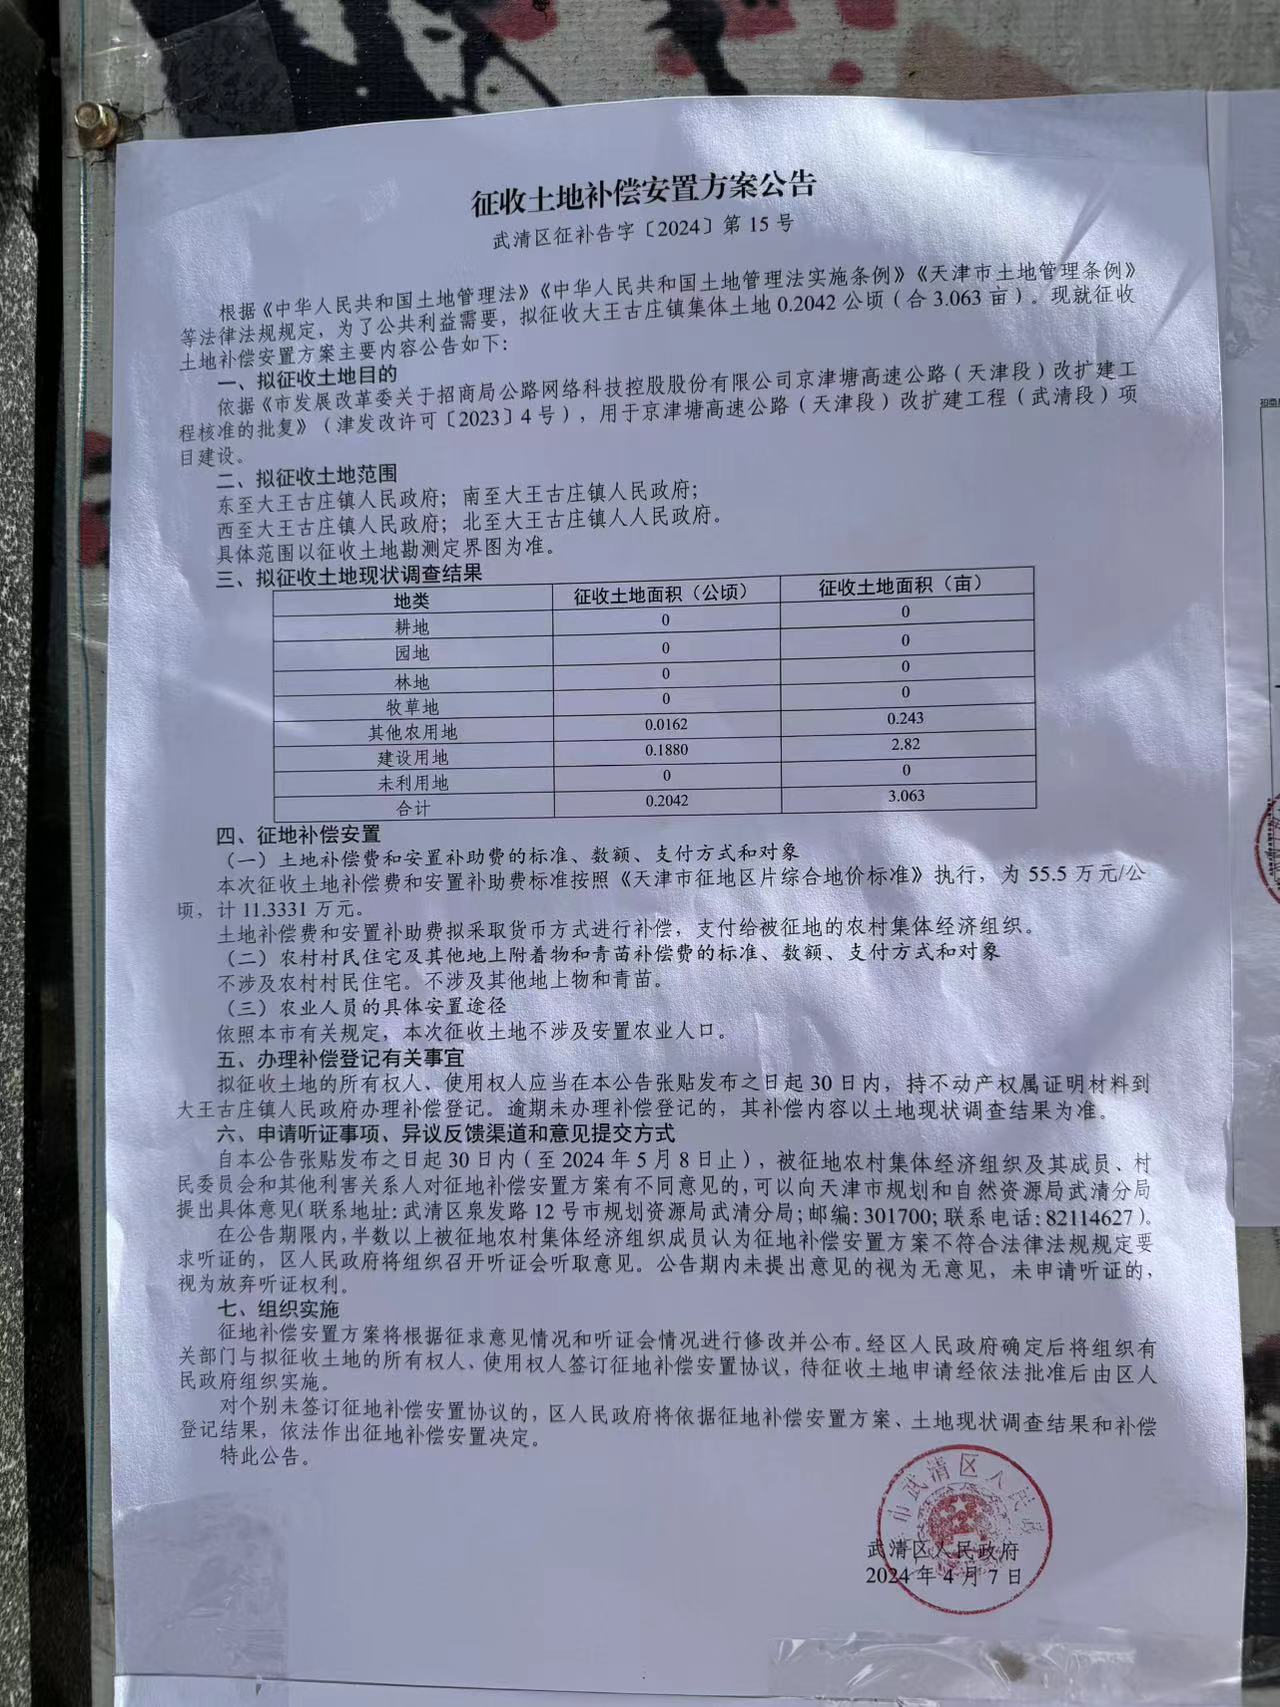 征收土地补偿安置方案公告
武清区征补告字〔2024〕第 15 号
根据《中华人民共和国土地管理法》《中华人民共和国土地管理法实施条例》《天津市土地管理条例》
等法律法规规定，为了公共利益需要，拟征收大王古庄镇集体土地 0.2042 公顷（合 3.063 亩）。现就征收
土地补偿安置方案主要内容公告如下：
一、拟征收土地目的
依据《市发展改革委关于招商局公路网络科技控股股份有限公司京津塘高速公路（天津段）改扩建工
程核准的批复》（津发改许可〔2023〕4 号），用于京津塘高速公路（天津段）改扩建工程（武清段）项
目建设。
二、拟征收土地范围
东至大王古庄镇人民政府；南至大王古庄镇人民政府；
西至大王古庄镇人民政府；北至大王古庄镇人人民政府。
具体范围以征收土地勘测定界图为准。
三、拟征收土地现状调查结果
地类 征收土地面积（公顷） 征收土地面积（亩）
耕地 0 0
园地 0 0
林地 0 0
牧草地 0 0
其他农用地 0.0162 0.243
建设用地 0.1880 2.82
未利用地 0 0
合计 0.2042 3.063
四、征地补偿安置
（一）土地补偿费和安置补助费的标准、数额、支付方式和对象
本次征收土地补偿费和安置补助费标准按照《天津市征地区片综合地价标准》执行，为 55.5 万元/公
顷，计 11.3331 万元。
土地补偿费和安置补助费拟采取货币方式进行补偿，支付给被征地的农村集体经济组织。
（二）农村村民住宅及其他地上附着物和青苗补偿费的标准、数额、支付方式和对象
不涉及农村村民住宅。不涉及其他地上物和青苗。
（三）农业人员的具体安置途径
依照本市有关规定，本次征收土地不涉及安置农业人口。
五、办理补偿登记有关事宜
拟征收土地的所有权人、使用权人应当在本公告张贴发布之日起 30 日内，持不动产权属证明材料到
大王古庄镇人民政府办理补偿登记。逾期未办理补偿登记的，其补偿内容以土地现状调查结果为准。
六、申请听证事项、异议反馈渠道和意见提交方式
自本公告张贴发布之日起 30 日内（至 2024 年 5 月 8 日止），被征地农村集体经济组织及其成员、村
民委员会和其他利害关系人对征地补偿安置方案有不同意见的，可以向天津市规划和自然资源局武清分局
提出具体意见（联系地址：武清区泉发路 12 号市规划资源局武清分局；邮编：301700；联系电话：82114627）。
在公告期限内，半数以上被征地农村集体经济组织成员认为征地补偿安置方案不符合法律法规规定要
求听证的，区人民政府将组织召开听证会听取意见。公告期内未提出意见的视为无意见，未申请听证的，
视为放弃听证权利。
七、组织实施
征地补偿安置方案将根据征求意见情况和听证会情况进行修改并公布。经区人民政府确定后将组织有
关部门与拟征收土地的所有权人、使用权人签订征地补偿安置协议，待征收土地申请经依法批准后由区人
民政府组织实施。
对个别未签订征地补偿安置协议的，区人民政府将依据征地补偿安置方案、土地现状调查结果和补偿
登记结果，依法作出征地补偿安置决定。
特此公告。
市武清区人民政
武清区人民政府
2024 年 4 月 7 日